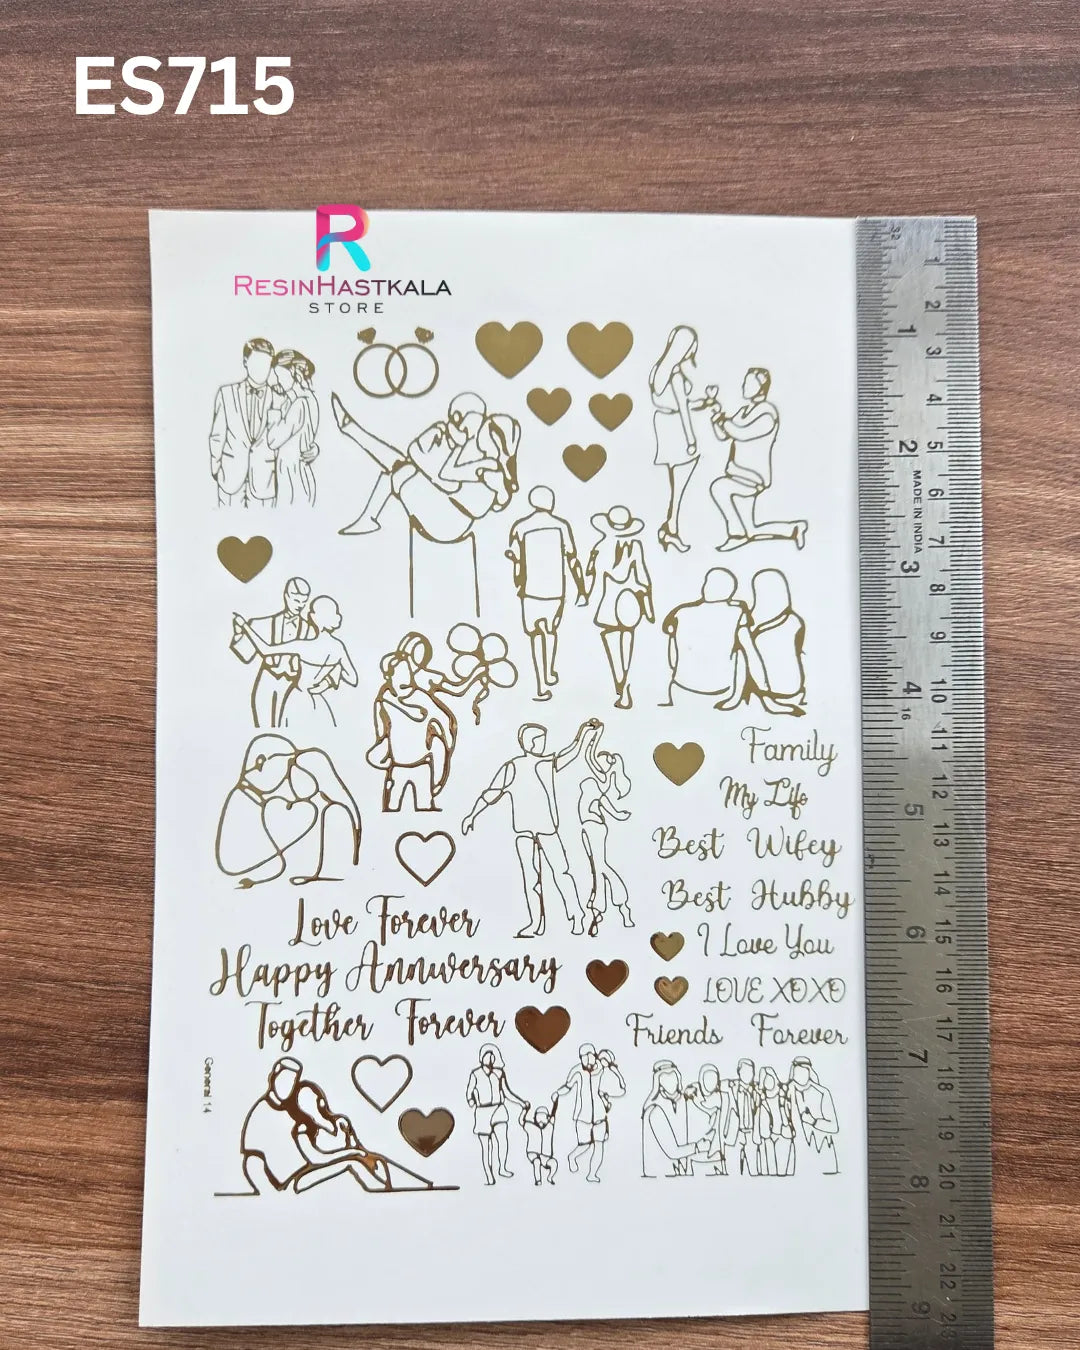 ES715
R
RESINHASTKALA
STORE
Family
My Life
Best Wifey
Best Hubby
I Love You
LOVE XOXO
Friends Forever
Love Forever
Happy Anniversary
Together Forever
General 14
MADE IN INDIA
32
1
2
3
4
16
5
6
7
8
9
1
2
3
4
5
6
7
8
9
10
11
12
13
14
15
16
17
18
19
20
21
22